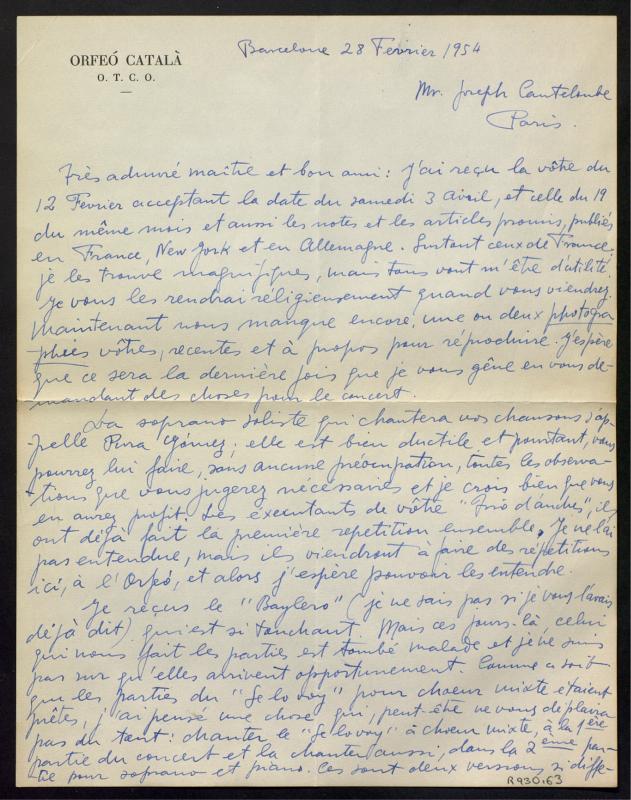 ORFEÓ CATALÀ
O. T. C. O.
Barcelone 28 Fevrier 1954
Mr. Joseph Canteloube
Paris.
Très admiré maître et bon ami: j'ai reçu la vôtre du
12 Fevrier acceptant la date du samedi 3 Avril, et celle du 19
du même mois et aussi les notes et les articles promis, publiés
en France, New York et en Allemagne. Surtout ceux de France,
je les trouve magnifiques, mais tous vont m'être d'utilité.
Je vous les rendrai religieusement quand vous viendrez.
Maintenant nous manque encore, une ou deux photogra
phies vôtres, recentes et à propos pour réproduire. J'espère
que ce sera la dernière fois que je vous gêne en vous de-
mandant des choses pour le concert.
La soprano soliste qui chantera vos chansons s'ap-
pelle Pura Gómez; elle est bien ductile et pourtant, vous
pourrez lui faire, sans aucune préocupation, toutes les observa-
tions que vous jugerez nécessaires et je crois bien que vous
en aurez profit. Les executants de vôtre "Trio d'anches", ils
ont déjà fait la première repetition ensemble. Je ne l'ai
pas entendue, mais ils viendront à faire des répetitions
ici, à l'Orfeó, et alors j'espère pouvoir les entendre.
Je reçus le "Baylero" (je ne sais pas si je vous l'avais
déjà dit) qui est si touchant. Mais ces jours-là celui
qui nous fait les parties est tombé malade et je ne suis
pas sur qu'elles arrivent opportunement. Comme ça soit
que les parties du "Se lo voy" pour choeur mixte étaient
prêtes, j'ai pensé une chose qui, peut-être ne vous deplaira
pas du tout: chanter le "Se lo voy" à choeur mixte, à la 1ère
partie du concert et la chanter aussi, dans la 2ème par-
tie pour soprano et piano. Ces sont deux versions si diffe-
R930.63